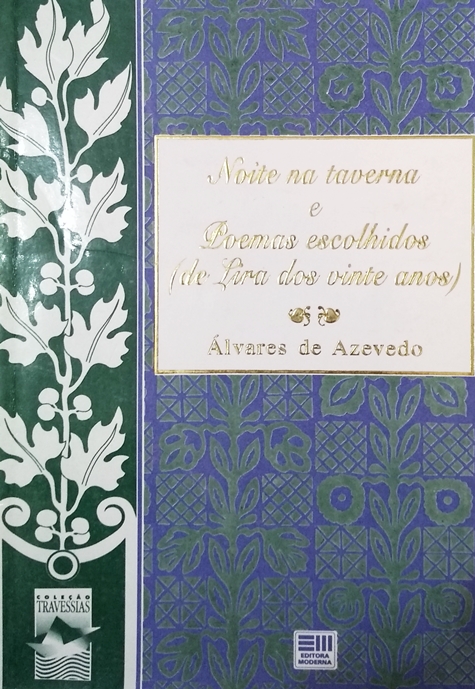 Noite na taverna
e
Poemas escolhidos
(de Lira dos vinte anos)
Álvares de Azevedo
COLEÇÃO
TRAVESSIAS
EDITORA
MODERNA